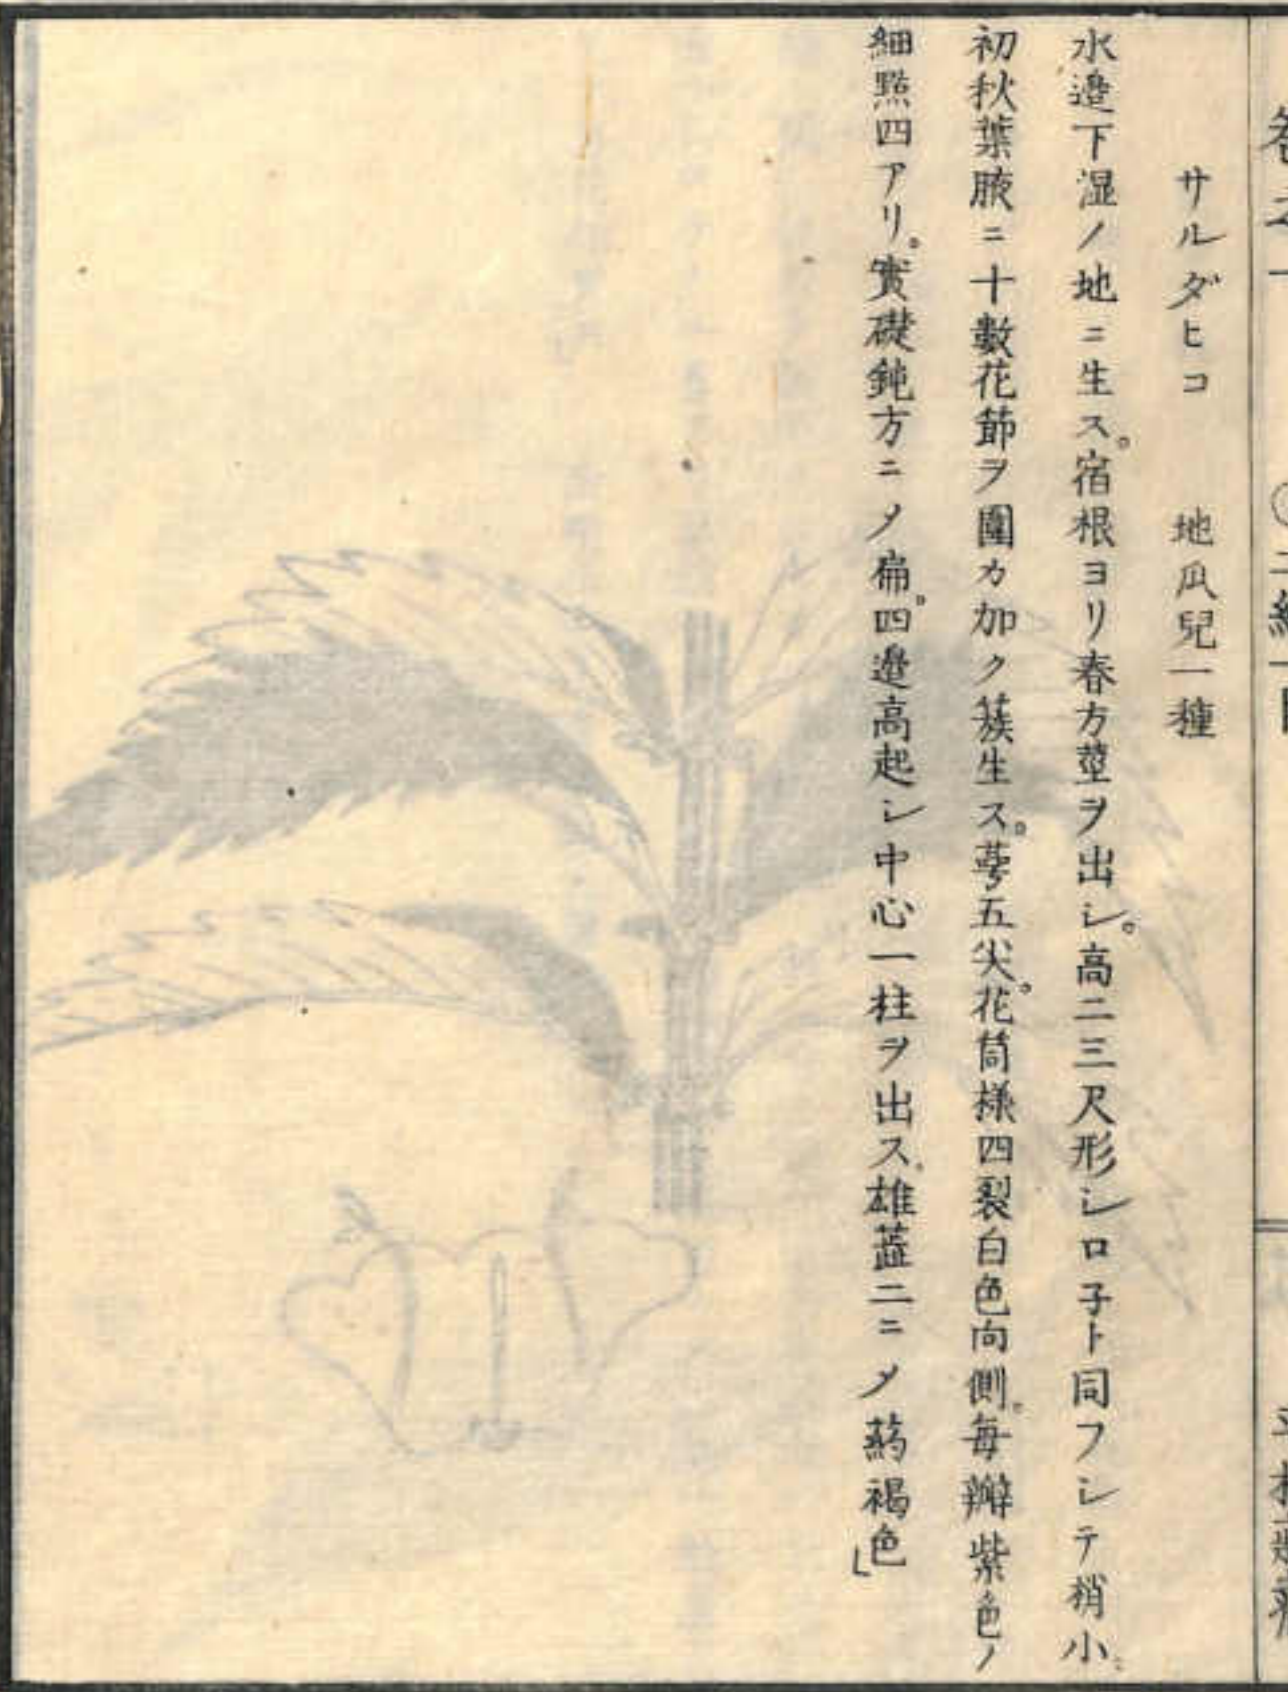 サルダヒコ　地瓜兒一種
水邉下湿ノ地ニ生ス。宿根ヨリ春方莖ヲ出シ。高二三尺形シロ子ト同フシテ梢小。
初秋葉腋ニ十數花節ヲ圍カ加ク簇生ス。萼五尖。花筒様四裂白色向側。每瓣紫色ノ
細點四アリ。實礎鈍方ニメ扁。四邉高起シ中心一柱ヲ出ス。雄蕋二ニメ葯褐色」